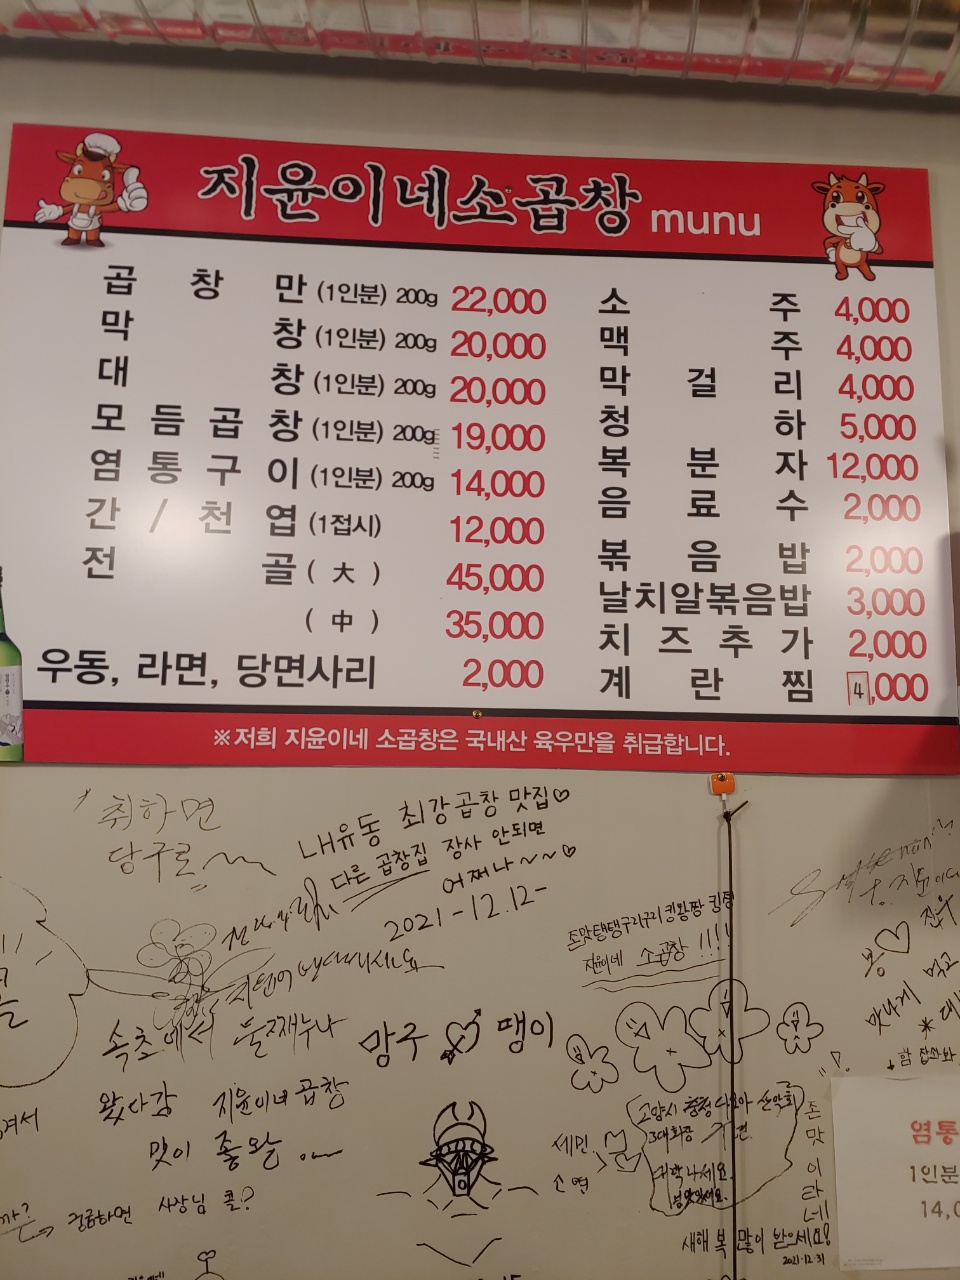 지윤이네소곱창 munu
곱창만 (1인분) 200g 22,000
막창 (1인분) 200g 20,000
대창 (1인분) 200g 20,000
모듬곱창 (1인분) 200g 19,000
염통구이 (1인분) 200g 14,000
간/천엽 (1접시) 12,000
전골 (大) 45,000
(中) 35,000
우동, 라면, 당면사리 2,000
소주 4,000
맥주 4,000
막걸리 4,000
청하 5,000
복분자 12,000
음료수 2,000
볶음밥 2,000
날치알볶음밥 3,000
치즈추가 2,000
계란찜 4,000
※저희 지윤이네 소곱창은 국내산 육우만을 취급합니다.
취하면
당구로
내유동 최강곱창 맛집♡
다른 곱창집 장사 안되면
어쩌나~~♡
2021-12.12-
지윤이네 소곱창 !!!!
속초에서 둘째누나
왔다감 지윤이네곱창
맛이 좋와
망구 땡이
세민
소연
궁금하면 사장님 콜?
존
맛
이
라
네!
새해 복 많이 받으세요!
2021.12.31
맛나게 먹고
염통
1인분
14,0